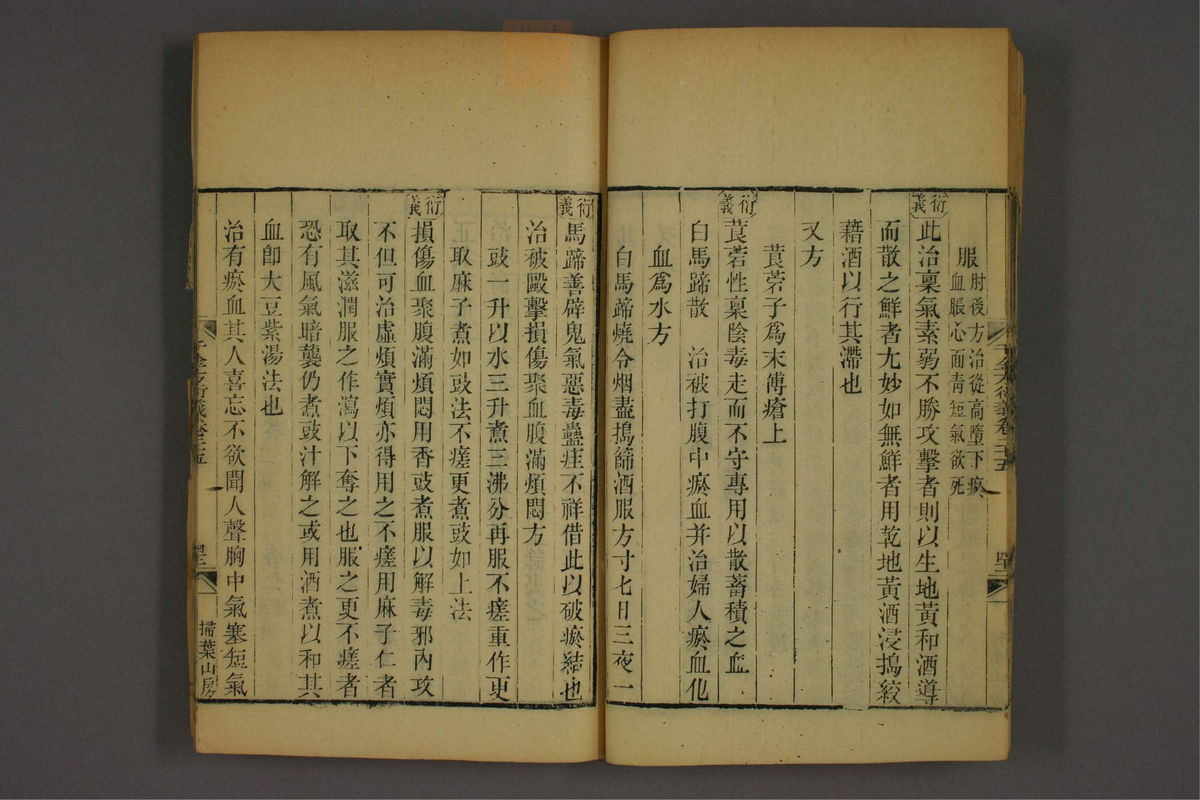 千金方衍義卷二十五
服肘後方治從高墮下瘀
血脹心面青短氣欲死
衍義
此治稟氣素弱不勝攻擊者則以生地黃和酒導
而散之鮮者尤妙如無鮮者用乾地黃酒浸搗絞
藉酒以行其滯也
又方
莨菪子爲末傅瘡上
衍義
莨菪性稟陰毒走而不守專用以散蓄積之血
白馬蹄散 治被打腹中瘀血并治婦人瘀血化
血爲水方
白馬蹄燒令烟盡搗篩酒服方寸七日三夜一
衍義
馬蹄善辟鬼氣惡毒蠱疰不祥借此以破瘀結也
治被毆擊損傷聚血腹滿煩悶方
豉一升以水三升煮三沸分再服不瘥重作更
取麻子煮如豉法不瘥更煮豉如上法
衍義
損傷血聚腹滿煩悶用香豉煮服以解毒邪內攻
不但可治虛煩實煩亦得用之不瘥用麻子仁者
取其滋潤服之作瀉以下奪之也服之更不瘥者
恐有風氣暗襲仍煮豉汁解之或用酒煮以和其
血卽大豆紫湯法也
治有瘀血其人喜忘不欲聞人聲胸中氣塞短氣
千金方衍義卷二十五
掃葉山房